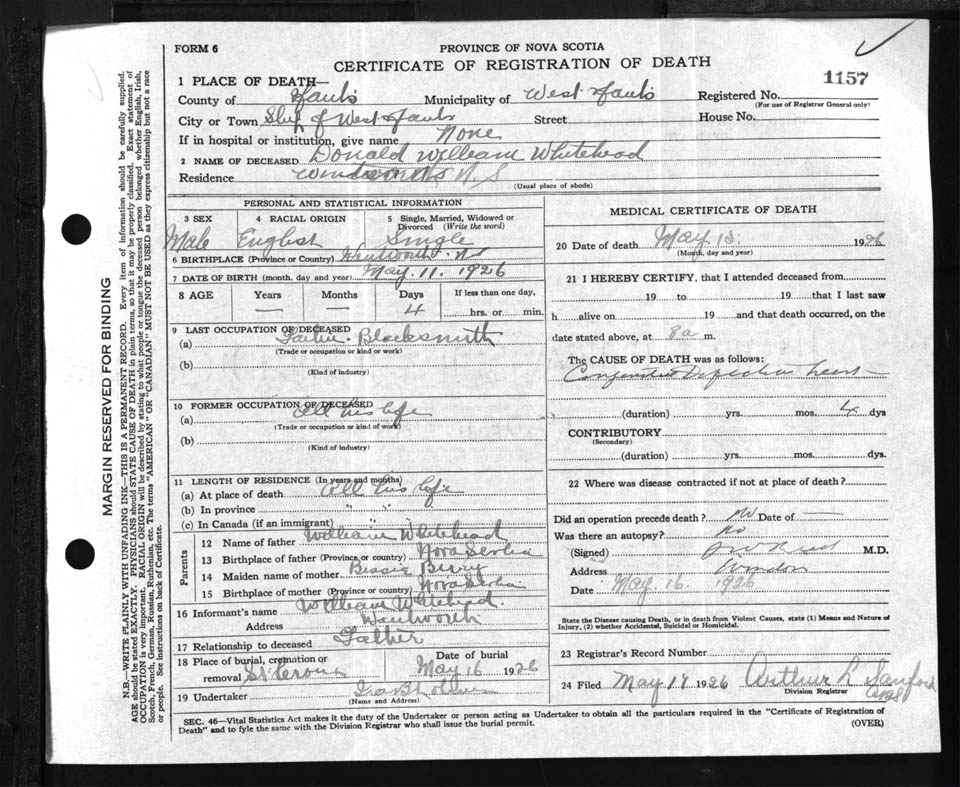 FORM 6
PROVINCE OF NOVA SCOTIA
CERTIFICATE OF REGISTRATION OF DEATH
1157
1 PLACE OF DEATH—
County of Hants Municipality of West Hants Registered No.
(For use of Registrar General only)
City or Town of West Hants Street House No.
If in hospital or institution, give name None
2 NAME OF DECEASED Donald William Whitehead
Residence Windsor N.S.
(Usual place of abode)
PERSONAL AND STATISTICAL INFORMATION
3 SEX 4 RACIAL ORIGIN 5 Single, Married, Widowed or Divorced (Write the word)
Male English Single
6 BIRTHPLACE (Province or Country) Wentworth N.S
7 DATE OF BIRTH (month, day and year) May 11. 1926
8 AGE Years Months Days If less than one day,
— — 4 hrs. or min.
9 LAST OCCUPATION OF DECEASED
(a) Father. Blacksmith
(Trade or occupation or kind or work)
(b)
(Kind of industry)
10 FORMER OCCUPATION OF DECEASED
(a) All his life
(Trade or occupation or kind of work)
(b)
(Kind of industry)
11 LENGTH OF RESIDENCE (In years and months)
(a) At place of death All his life
(b) In province " " "
(c) In Canada (if an immigrant) " "
Parents
12 Name of father William Whitehead
13 Birthplace of father (Province or country) Nova Scotia
14 Maiden name of mother Bessie Berry
15 Birthplace of mother (Province or country) Nova Scotia
16 Informant's name William Whitehead
Address Wentworth
17 Relationship to deceased Father
18 Place of burial, cremation or removal St Croix Date of burial May 16 1926
19 Undertaker
(Name and Address)
MEDICAL CERTIFICATE OF DEATH
20 Date of death May 15. 1926
(Month, day and year)
21 I HEREBY CERTIFY, that I attended deceased from
19 to 19 that I last saw
h alive on 19 and that death occurred, on the
date stated above, at 8 a m.
The CAUSE OF DEATH was as follows:
Congenital Defective heart
(duration) yrs. mos. 4 dys
CONTRIBUTORY
(Secondary)
(duration) yrs. mos. dys.
22 Where was disease contracted if not at place of death?
Did an operation precede death? no Date of —
Was there an autopsy? no
(Signed) M.D.
Address Windsor
Date May 16. 1926
State the Disease causing Death, or in death from Violent Causes, state (1) Means and Nature of Injury, (2) whether Accidental, Suicidal or Homicidal.
23 Registrar's Record Number
24 Filed May 17 1926 Arthur L Sanford
Division Registrar
SEC. 46—Vital Statistics Act makes it the duty of the Undertaker or person acting as Undertaker to obtain all the particulars required in the "Certificate of Registration of
Death" and to fyle the same with the Division Registrar who shall issue the burial permit.
(OVER)
MARGIN RESERVED FOR BINDING
N.B.—WRITE PLAINLY WITH UNFADING INK—THIS IS A PERMANENT RECORD. Every item of information should be carefully supplied.
AGE should be stated EXACTLY. PHYSICIANS should STATE CAUSE OF DEATH in plain terms, so that it may be properly classified. Exact statement of
OCCUPATION is very important. RACIAL ORIGIN will be described by stating to what people or tongue the deceased person belonged whether English, Irish,
Scotch, French, German, Russian, Ruthenian, etc. The terms "AMERICAN" OR "CANADIAN" MUST NOT BE USED as they express citizenship but not a race
or people. See instructions on back of Certificate.